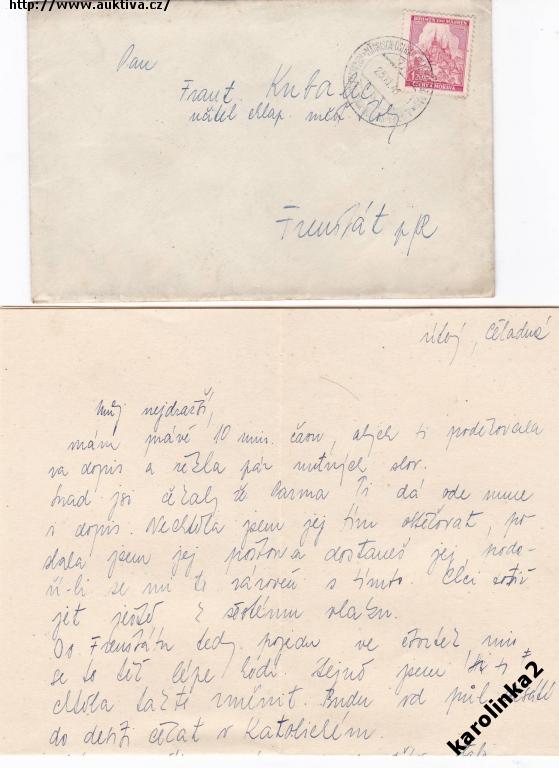 http://www.auktiva.cz/
Pan
Frant.
učitel měst.
Frenštát p/R
BÖHMEN UND MÄHREN
ČECHY A MORAVA
Úterý, Čeladná
Můj nejdražší,
mám právě 10 min. času, abych ti poděkovala
na dopis a řekla pár nutných slov.
Snad jsi čekal, že Ti dá ode mne
dopis. Nechtěla jsem jej tím obtěžovat, po
slala jsem jej poštou a dostaneš jej, podo
ří-li se mi to zároveň s tímto. Chci totiž
jet ještě k vlaku.
Do Frenštátu tedy pojedu ve čtvrtek
se to teď lépe hodí. Stejně jsem
chtěla změnit. Budu od půl
do deseti čekat v Katolickém.
karolinka2